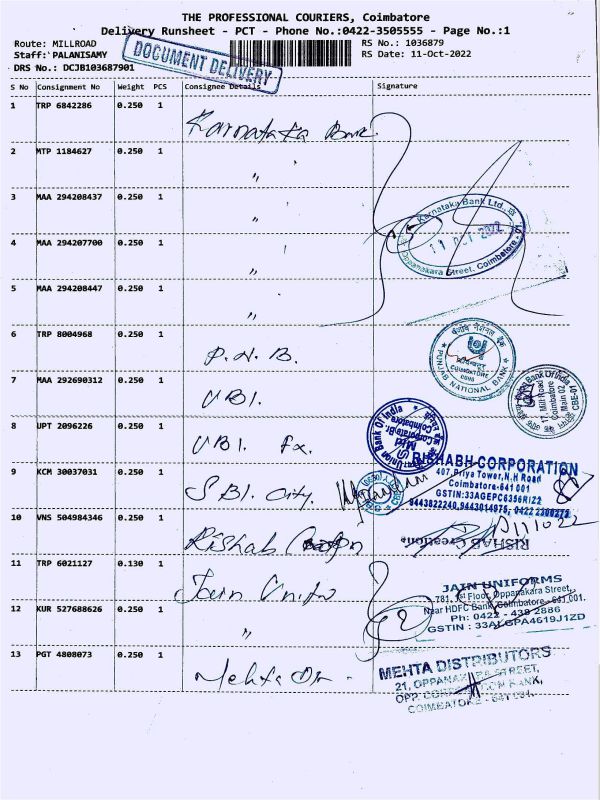 THE PROFESSIONAL COURIERS, Coimbatore
Delivery Runsheet - PCT - Phone No.:0422-3505555 - Page No.:1
Route: MILLROAD
RS No.: 1036879
Staff: PALANISAMY
RS Date: 11-Oct-2022
DRS No.: DCJB103687901
DOCUMENT DELIVERY
S No Consignment No Weight PCS Consignee Details Signature
1 TRP 6842286 0.250 1 Karnataka Bank
2 MTP 1184627 0.250 1 "
3 MAA 294208437 0.250 1 "
Karnataka Bank Ltd.,
11 OCT 2022
Oppanakara Street, Coimbatore
4 MAA 294207700 0.250 1 "
5 MAA 294208447 0.250 1 "
6 TRP 8004968 0.250 1 P.N.B.
पंजाब नैशनल बैंक
COIMBATORE
PUNJAB NATIONAL BANK
7 MAA 292690312 0.250 1 UBI.
Union Bank Of India
17, Mill Road
Coimbatore
Main 02
CBE-01
8 UPT 2096226 0.250 1 UBI. Fx.
Union Bank Of India
9 KCM 30037031 0.250 1 SBI. City.
RISHABH CORPORATION
407, Priya Tower, N.H Road
Coimbatore-641 001
GSTIN:33AGEPC6356R1Z2
9443822240, 9443014975, 0422 2300272
10 VNS 504984346 0.250 1 Rishab
RISHAB Creations
11 TRP 6021127 0.130 1 Jain Unifo
JAIN UNIFORMS
781, 1st Floor, Oppanakara Street,
Near HDFC Bank, Coimbatore - 641 001.
Ph: 0422 - 438 2886
GSTIN : 33ALGPA4619J1ZD
12 KUR 527688626 0.250 1 "
13 PGT 4808073 0.250 1 Mehta Dr -
MEHTA DISTRIBUTORS
21, OPPANAKARA STREET,
OPP CORPORATION BANK,
COIMBATORE - 641 001.